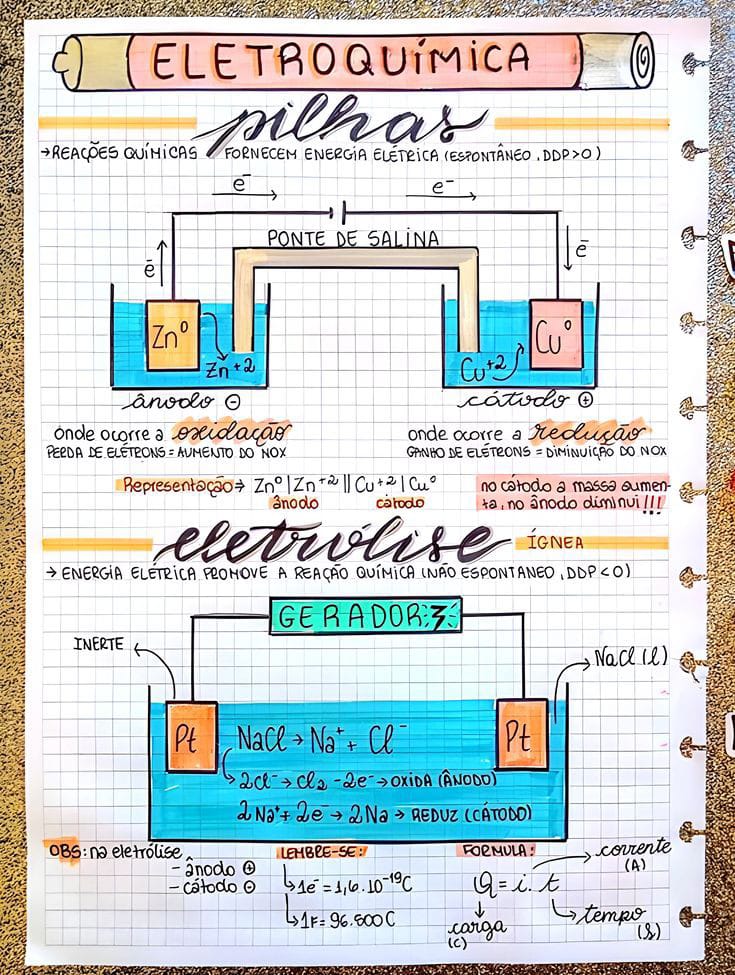 ELETROQUÍMICA
pilhas
→ REAÇÕES QUÍMICAS FORNECEM ENERGIA ELÉTRICA (ESPONTÂNEO, DDP>0)
e⁻ e⁻
PONTE DE SALINA
ē ē
Zn⁰ Zn⁺² Cu⁺² Cu⁰
ânodo ⊖ cátodo ⊕
onde ocorre a oxidação onde ocorre a redução
PERDA DE ELÉTRONS = AUMENTO DO NOX GANHO DE ELÉTRONS = DIMINUIÇÃO DO NOX
Representação → Zn⁰|Zn⁺²||Cu⁺²|Cu⁰
ânodo cátodo
no cátodo a massa aumen-
ta, no ânodo diminui!!!
eletrólise ÍGNEA
→ ENERGIA ELÉTRICA PROMOVE A REAÇÃO QUÍMICA (NÃO ESPONTANEO, DDP<0)
GERADOR
INERTE NaCl (l)
Pt NaCl → Na⁺ + Cl⁻ Pt
2Cl⁻ → Cl₂ - 2e⁻ → OXIDA (ÂNODO)
2Na⁺ + 2e⁻ → 2Na → REDUZ (CÁTODO)
OBS: na eletrólise
- ânodo ⊕
- cátodo ⊖
LEMBRE-SE:
1e⁻ = 1,6.10⁻¹⁹C
1F = 96.500C
FORMULA:
Q = i. t
corrente
(A)
carga
(C)
tempo
(s)